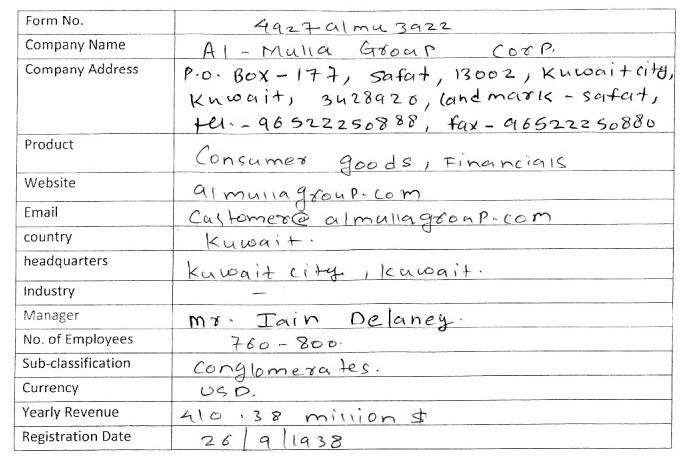 Form No. 4927almu3922
Company Name Al - Mulla Group Corp.
Company Address P.O. Box - 177, Safat, 13002, Kuwait city,
Kuwait, 3428920, landmark - safat,
tel. - 96522250888, fax - 96522250880
Product Consumer goods, Financials
Website almullagroup.com
Email Customer@almullagroup.com
country Kuwait.
headquarters Kuwait city, Kuwait.
Industry –
Manager Mr. Iain Delaney.
No. of Employees 760 - 800.
Sub-classification Conglomerates.
Currency USD.
Yearly Revenue 410.38 million $
Registration Date 26/9/1938